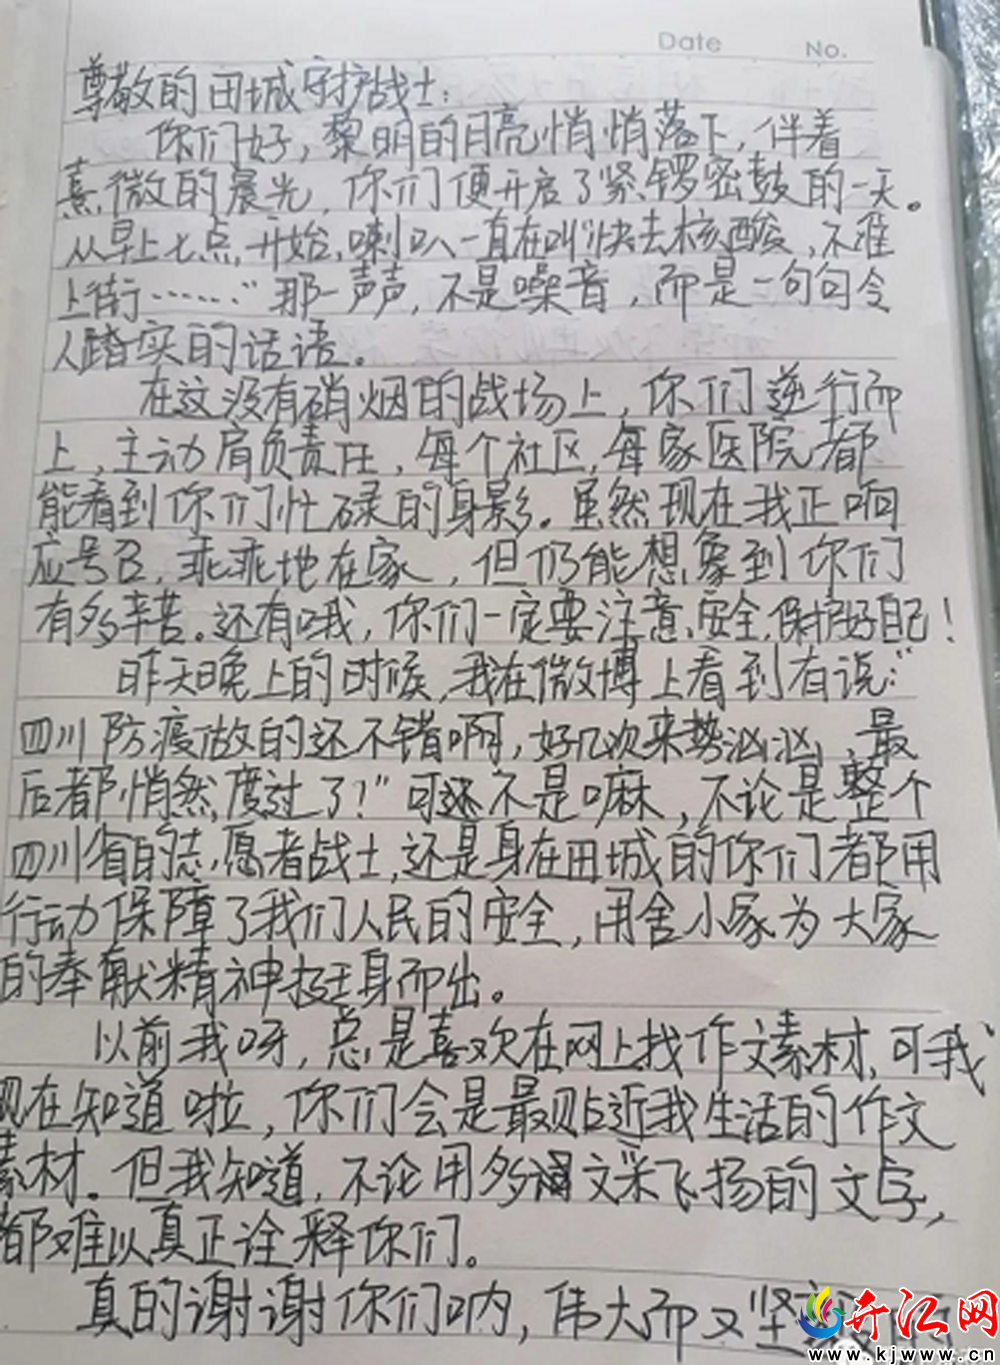 Date No.
尊敬的田城守护战士:
你们好,黎明的月亮悄悄落下,伴着
熹微的晨光,你们便开启了紧锣密鼓的一天。
从早上七点开始,喇叭一直在叫“快去核酸,不准
上街……”那一声声,不是噪音,而是一句句令
人踏实的话语。
在这没有硝烟的战场上,你们逆行而
上,主动肩负责任,每个社区,每家医院都
能看到你们忙碌的身影。虽然现在我正响
应号召,乖乖地在家,但仍能想象到你们
有多辛苦。还有哦,你们一定要注意安全,保护好自己!
昨天晚上的时候,我在微博上看到有说:“
四川防疫做的还不错啊,好几次来势汹汹,最
后都悄然度过了!”可还不是嘛,不论是整个
四川省的志愿者战士,还是身在田城的你们都用
行动保障了我们人民的安全,用舍小家为大家
的奉献精神挺身而出。
以前我呀,总是喜欢在网上找作文素材,可我
现在知道啦,你们会是最贴近我生活的作文
素材。但我知道,不论用多文采飞扬的文字,
都难以真正诠释你们。
真的谢谢你们呐,伟大而又坚
开江网
www.kjwww.cn